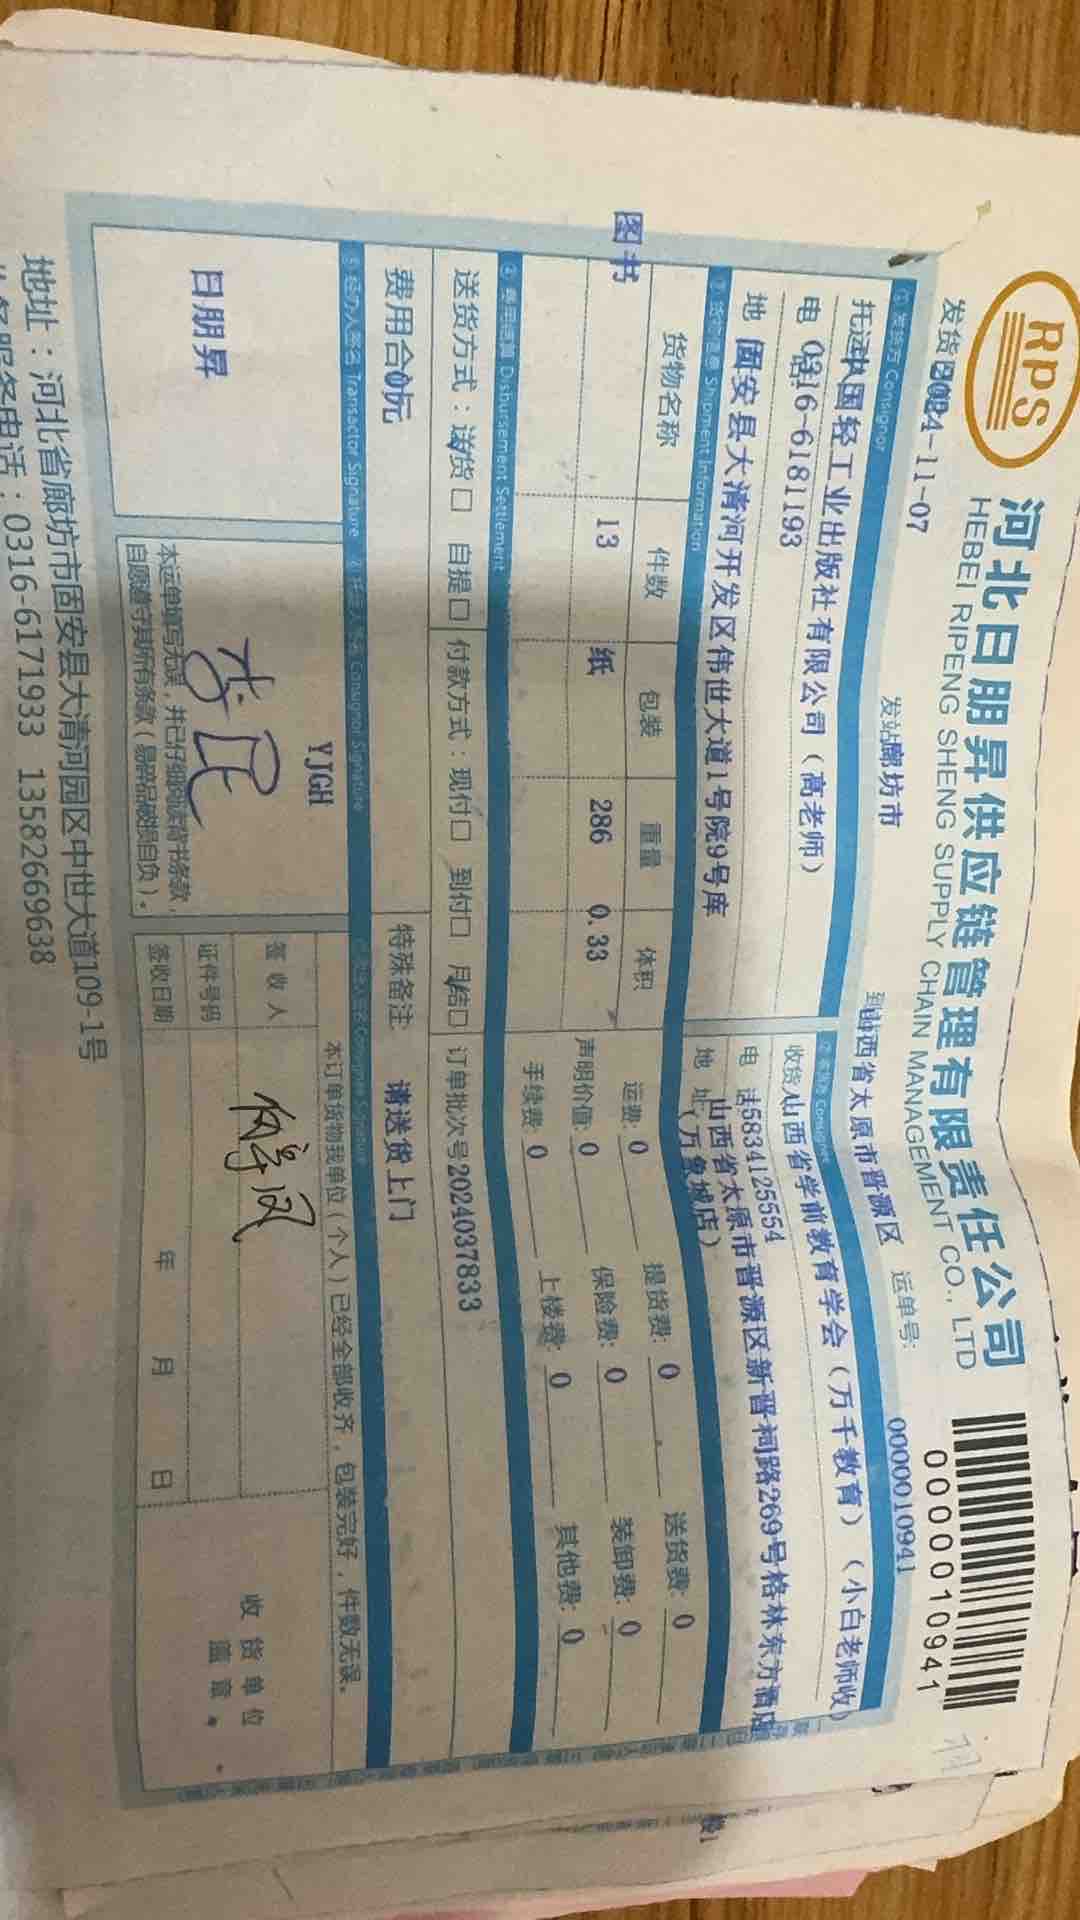 RPS
河北日朋昇供应链管理有限责任公司
HEBEI RIPENG SHENG SUPPLY CHAIN MANAGEMENT CO., LTD
0000010941
发货 2024-11-07 发站 廊坊市 到站 山西省太原市晋源区 运单号: 0000010941
① 发货方 Consignor
托运 中国轻工业出版社有限公司(高老师)
电 0316-6181193
地 固安县大清河开发区伟世大道1号院9号库
② 收货方 Consignee
收货人 山西省学前教育学会(万千教育)(小白老师收)
电 话 15834125554
地 址 山西省太原市晋源区新晋祠路269号格林东方酒店
(万象城店)
③ 货物信息 Shipment Information
货物名称 件数 包装 重量 体积
图书 13 纸 286 0.33
运费: 0 提货费: 0 送货费: 0
声明价值: 0 保险费: 0 装卸费: 0
手续费: 0 上楼费: 0 其他费: 0
费用结算 Disbursement Settlement
送货方式:送货☐ 自提☐ 付款方式:现付☐ 到付☐ 月结☐ 订单批次号2024037833
费用合 0元 特殊备注 请送货上门
⑤ 经办人签名 Transactor Signature
日朋昇
托运人签名 Consignor Signature
YJGH
本运单填写无误,并已仔细阅读背书条款,
自愿遵守其所有条款(易碎品破损自负)。
Consignee Signature
本订单货物我单位(个人)已经全部收齐,包装完好,件数无误。
签收人
证件号码
签收日期 年 月 日
收货单位
盖章
地址:河北省廊坊市固安县大清河园区中世大道109-1号
服务电话:0316-6171933 13582669638